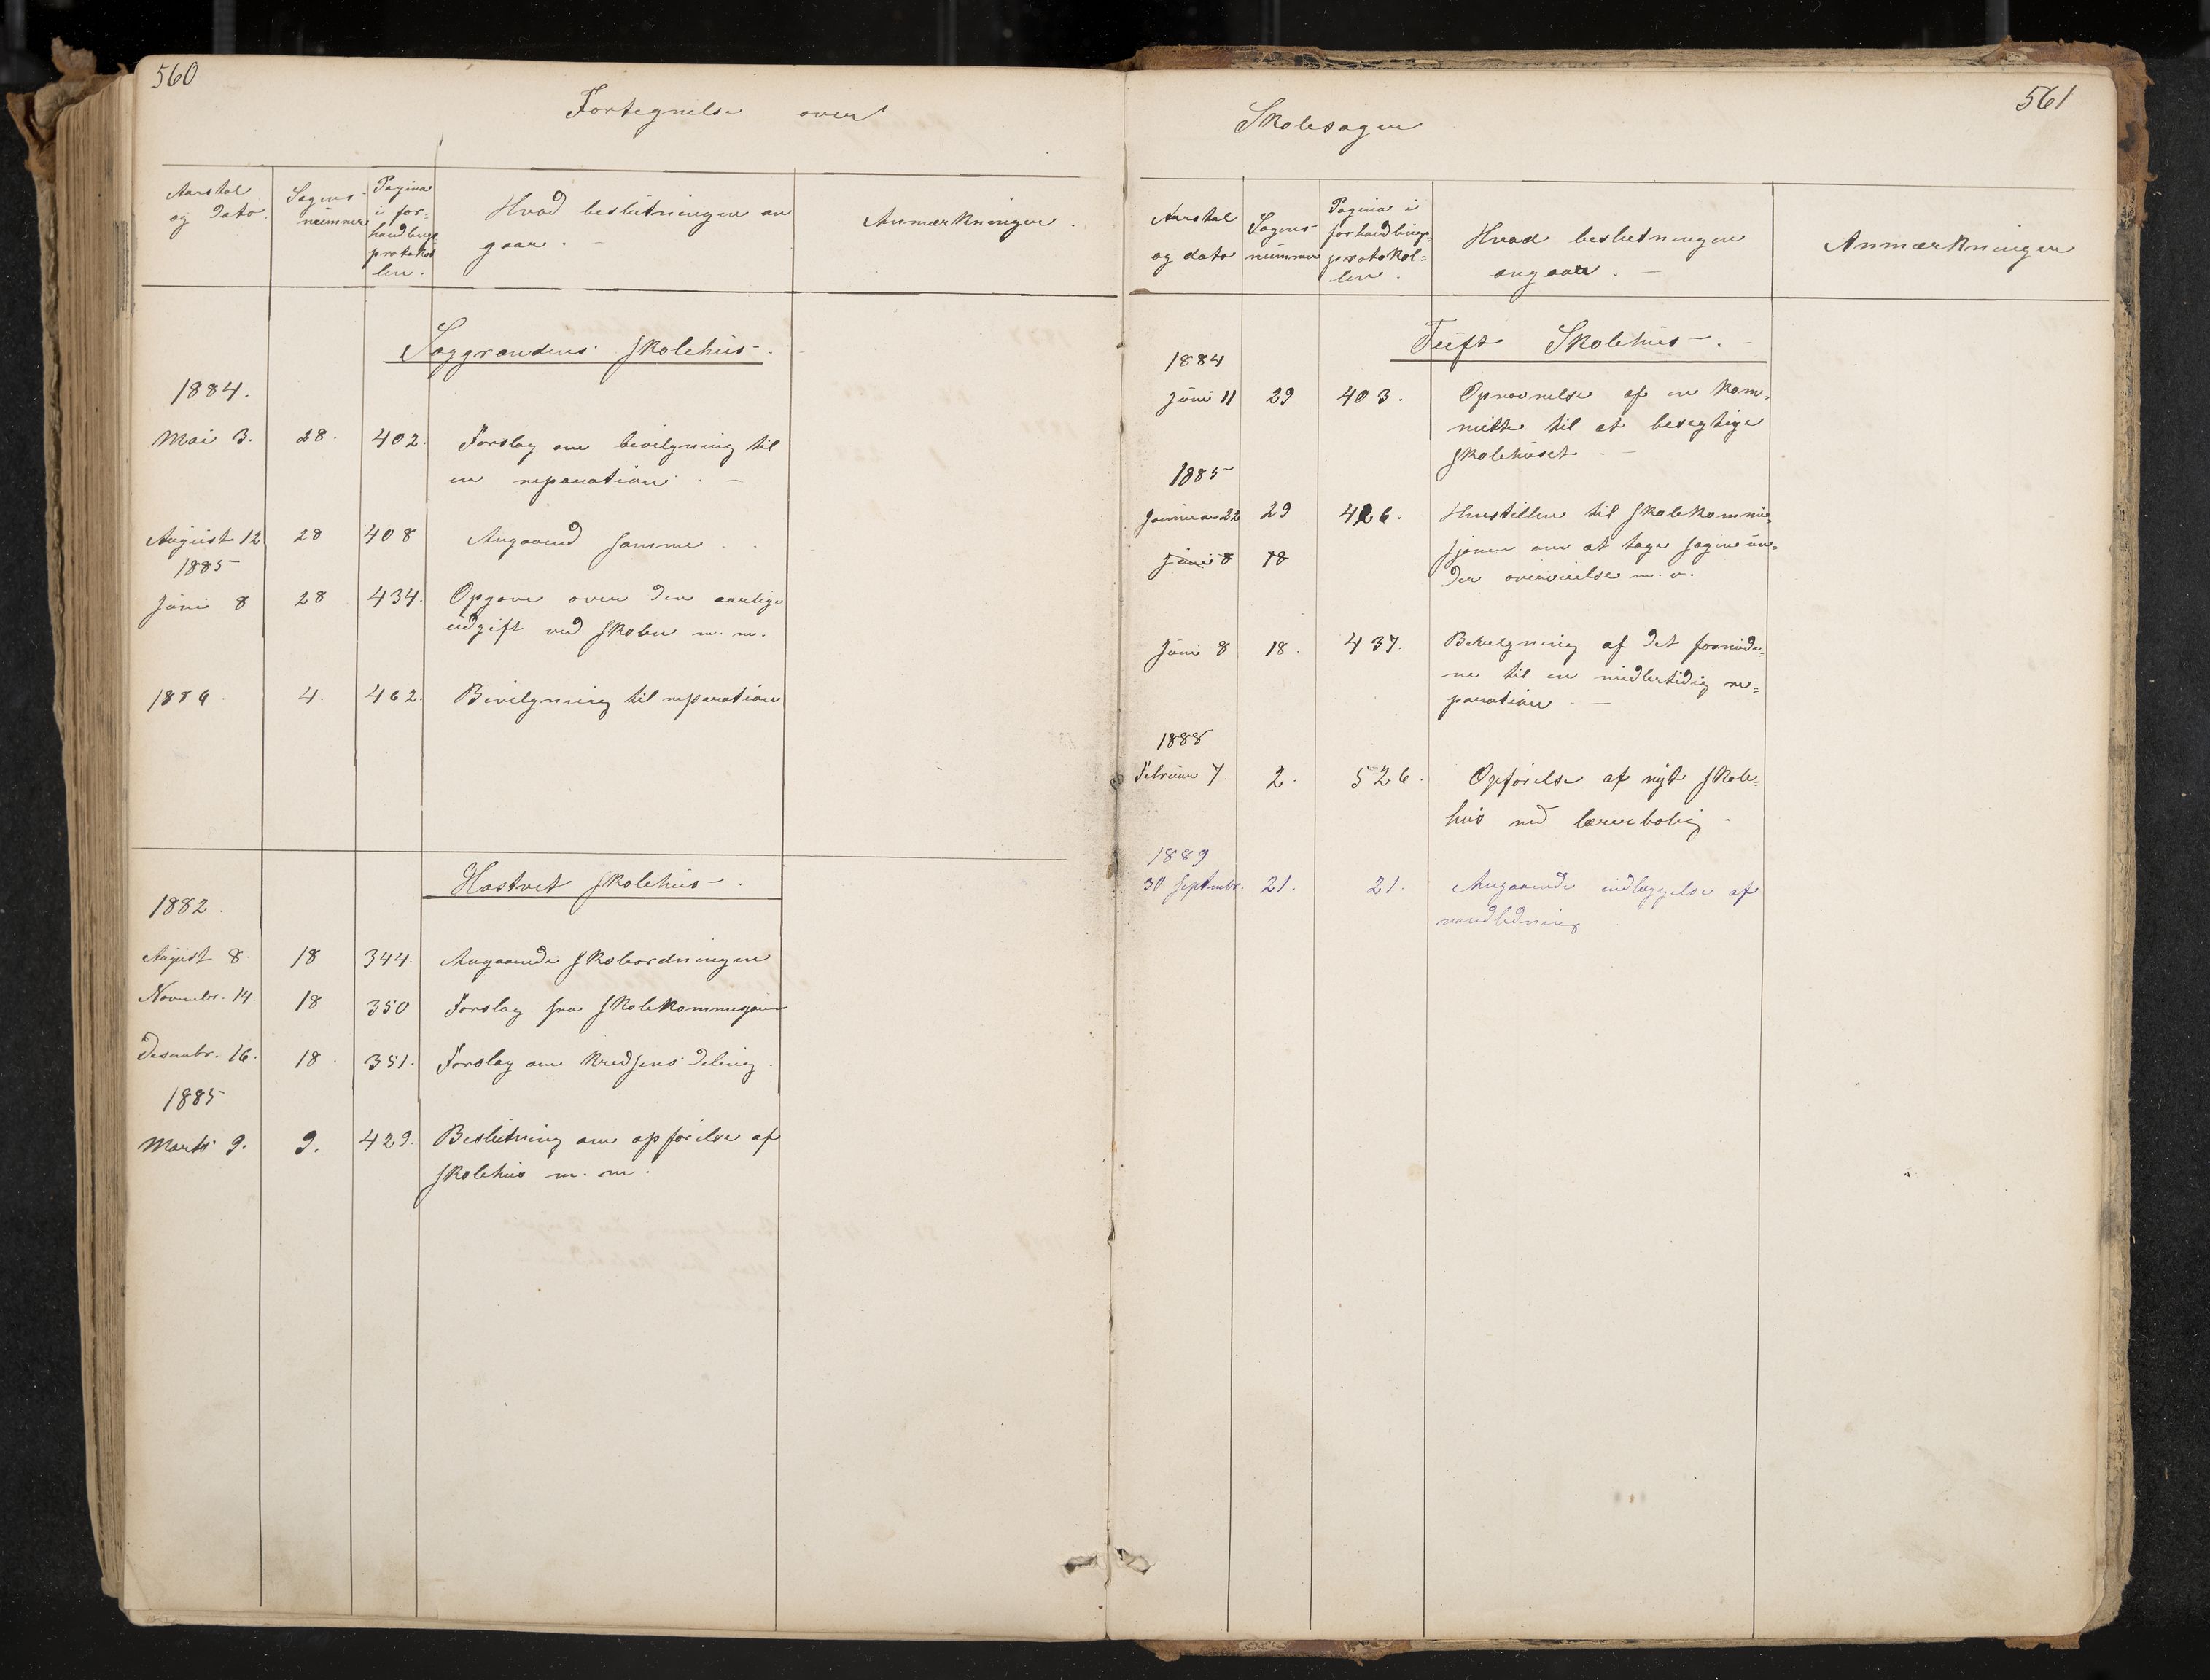 560
Fortegnelse over
Aarstal og Dato. Sagens nummer Pagina i forhandlingsprotokollen. Hvad beslutningen angaar. Anmærkninger.
Saggrendens skolehus.
1884.
Mai 3. 28. 402. Forslag om bevilgning til
en reparation.
August 12 28 408 Angaaend samme
1885
Juni 8 28 434. Opgave over den aarlige
udgift ved skolen m. m.
1886. 4. 462. Bevilgning til reparation
Hastvet skolehus.
1882.
August 8. 18 344. Angaaende skoleordningen
Novembr. 14. 18 350 Forslag fra skolekommisjonen
Desembr. 16. 18. 351. Forslag om kredsens deling.
1885
Marts 9. 9. 429. Beslutning om opförelse af
skolehus m. m.
561
Skolesager
Aarstal og dato Sagens nummer Pagina i forhandlings=protokol=len. Hvad beslutningen angaar. Anmærkninger
Tuft Skolehus.
1884
Juni 11 29 403. Opnævnelse af en kom=
mitte til at besegtige
skolehuset
1885
Januar 22 29 426. Henstillen til skolekommis=
Juni 8 18 sjonen om at tage sagen un=
der overveielse m. v.
Juni 8 18. 437. Bevilgning af det fornöde=
ne til en midlertidig re=
paration.
1888
Februar 7. 2. 526. Opförelse af nyt skole=
hus med lærerbolig.
1889
30 septembr. 21. 21. Angaaende indlæggelse af
vandledning